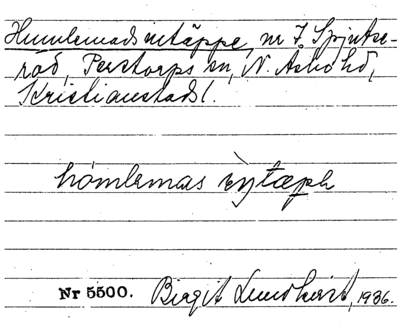 Humlemads intäppe, nr 7, Spjutse-
röd, Perstorps sn, N. Åsbo hd,
Kristianstads l.
hómlemas
Nr 5500. Birgit Lundkvist, 1936.